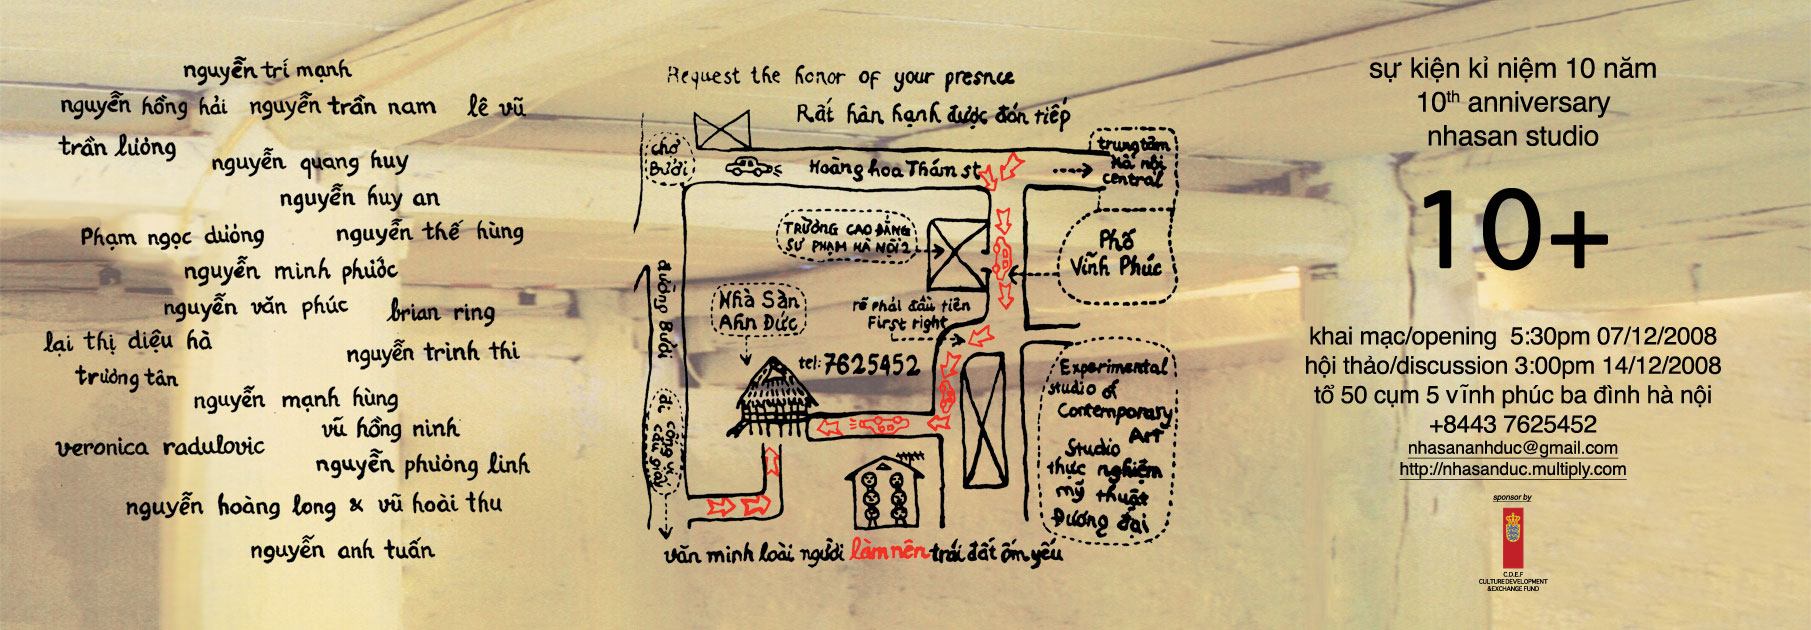 nguyễn trí mạnh
nguyễn hồng hải nguyễn trần nam lê vũ
trần lương
nguyễn quang huy
nguyễn huy an
Phạm ngọc dương nguyễn thế hùng
nguyễn minh phước
nguyễn văn phúc brian ring
lại thị diệu hà
nguyễn trinh thi
trương tân
nguyễn mạnh hùng
vũ hồng ninh
veronica radulovic
nguyễn phương linh
nguyễn hoàng long & vũ hoài thu
nguyễn anh tuấn
Request the honor of your presnce
Rất hân hạnh được đón tiếp
chợ
Bưởi
Hoàng hoa Thám st
trung tâm
hà nội
central
TRƯỜNG CAO ĐẲNG
SƯ PHẠM HÀ NỘI 2
Phố
Vĩnh Phúc
đường Bưởi
Nhà Sàn
Ahn Đức
rẽ phải đầu tiên
First right
tel: 7625452
đi
cống vị
cầu giấy
Experimental
studio of
Contemporary
Art
Studio
thực nghiệm
mỹ thuật
Đương đại
văn minh loài người làm nên trái đất ốm yếu
sự kiện kỉ niệm 10 năm
10th anniversary
nhasan studio
10+
khai mạc/opening 5:30pm 07/12/2008
hội thảo/discussion 3:00pm 14/12/2008
tổ 50 cụm 5 vĩnh phúc ba đình hà nội
+8443 7625452
nhasananhduc@gmail.com
http://nhasanduc.multiply.com
sponsor by
C.D.E.F
CULTURE DEVELOPMENT
& EXCHANGE FUND